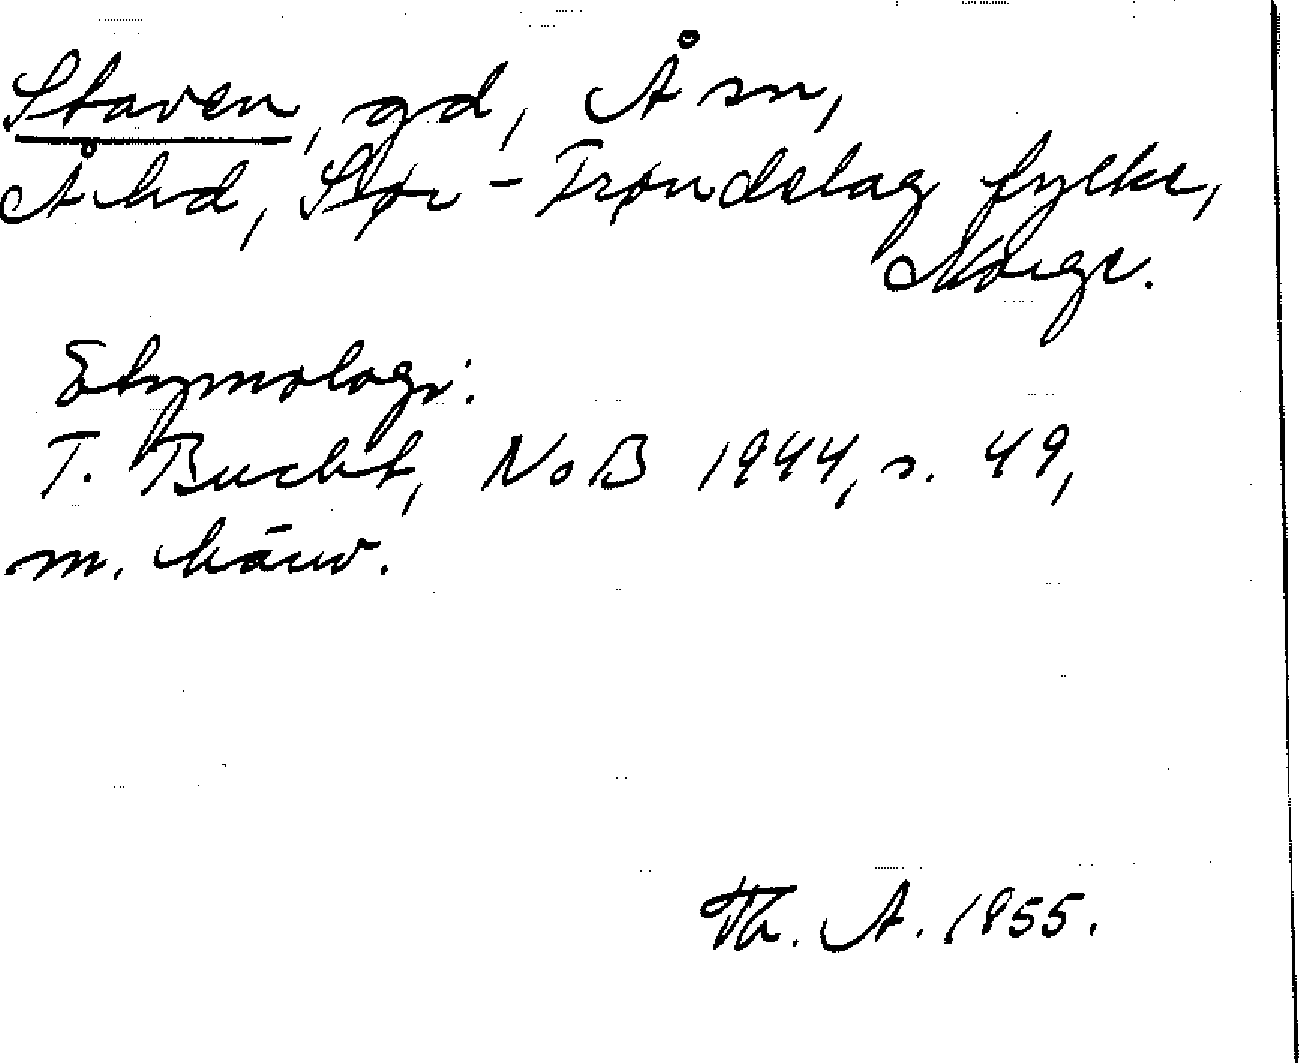 Staven, gd, Å sn,
Å hd, Sør-Trøndelag fylke,
Norge.
Etymologi:
T. Bucht, NoB 1944, s. 49,
m. hänv.
Th. A. 1955.